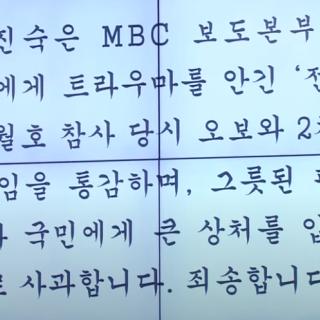 진숙은 MBC 보도본부
에게 트라우마를 안긴 '전
월호 참사 당시 오보와 2차
임을 통감하며, 그릇된
국민에게 큰 상처를 입
사과합니다. 죄송합니다